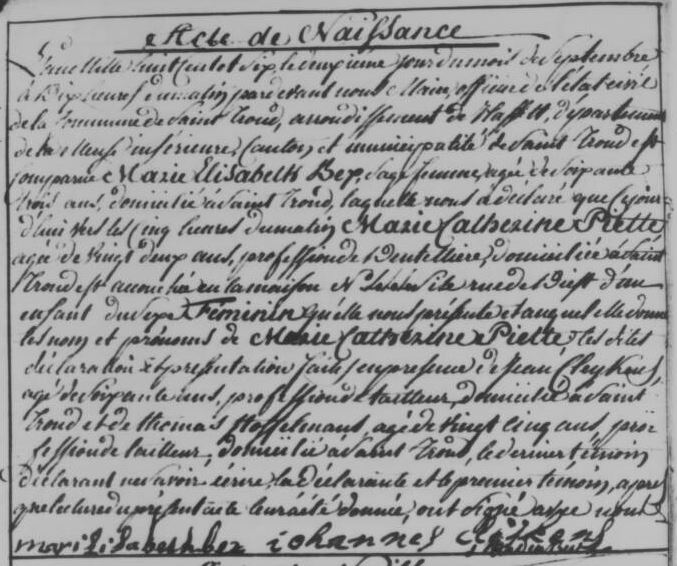 Acte de Naissance
L'an Mille huit cent et Six, le deuxieme jour du mois de Septembre
à Dix heures du matin pardevant nous Maire, officier de l'état civil
de la Commune de Saint Trond, arrondissement de Hasselt, département
de la Meuse inférieure, Canton et municipalité de Saint Trond est
comparue Marie Elisabeth Bex, Sage femme, agée de Soixante
trois ans, domiciliée à Saint Trond, laquelle nous a déclaré que Cejour
d'hui vers les Cinq heures du matin Marie Catherine Piette
agée de Vingt deux ans, profession de Dentelliere, domiciliée à Saint
Trond est accouchée en la maison N° Sitée rue de Diest d'un
enfant du Sexe Féminin qu'elle nous présente et auquel elle donne
les nom et prénoms de Marie Catherine Piette. Les dites
déclaration et présentation faites en presence de Jean Cleykens,
agé de Soixante ans, profession de tailleur, domicilié à Saint
Trond et de thomas agé de Vingt Cinq ans, pro-
fession de tailleur, domicilié à Saint Trond, le dernier témoin
déclarant ne Savoir écrire, la déclarante et le premier témoin, apres
que lecture du présent acte leur a été donnée, ont Signé avec nous
mari Lisabeth bex iohannes